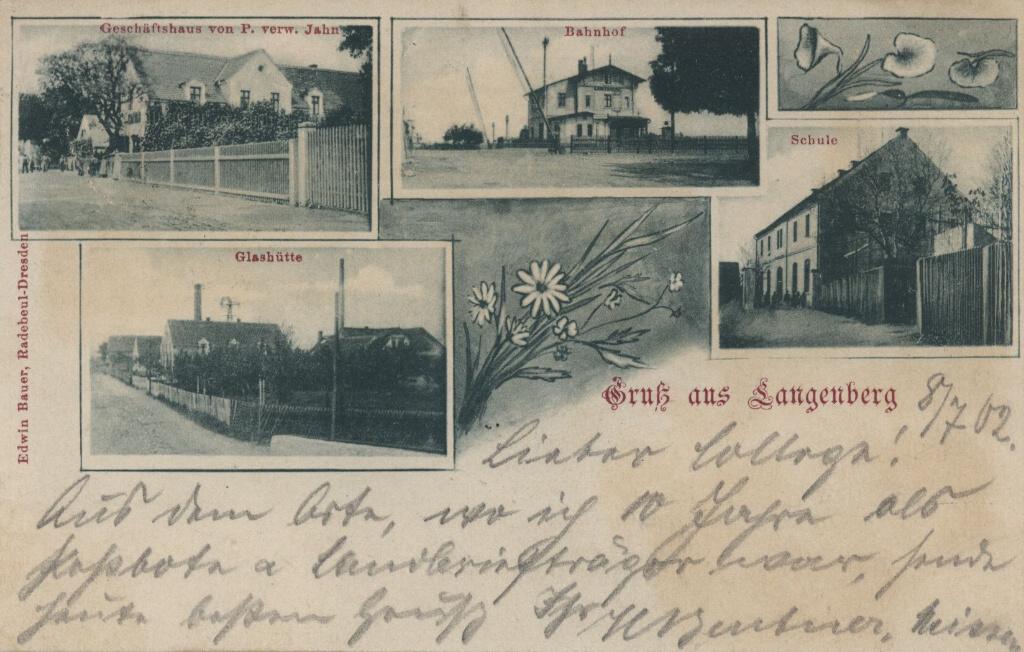 Geschäftshaus von P. verw. Jahn
Bahnhof
Schule
Glashütte
Edwin Bauer, Radebeul-Dresden
Gruß aus Langenberg
8/7 02.
Lieber College!
Aus dem Orte, wo ich 10 Jahre als
Postbote & Landbriefträger war, sende
heute besten Gruß Ihr